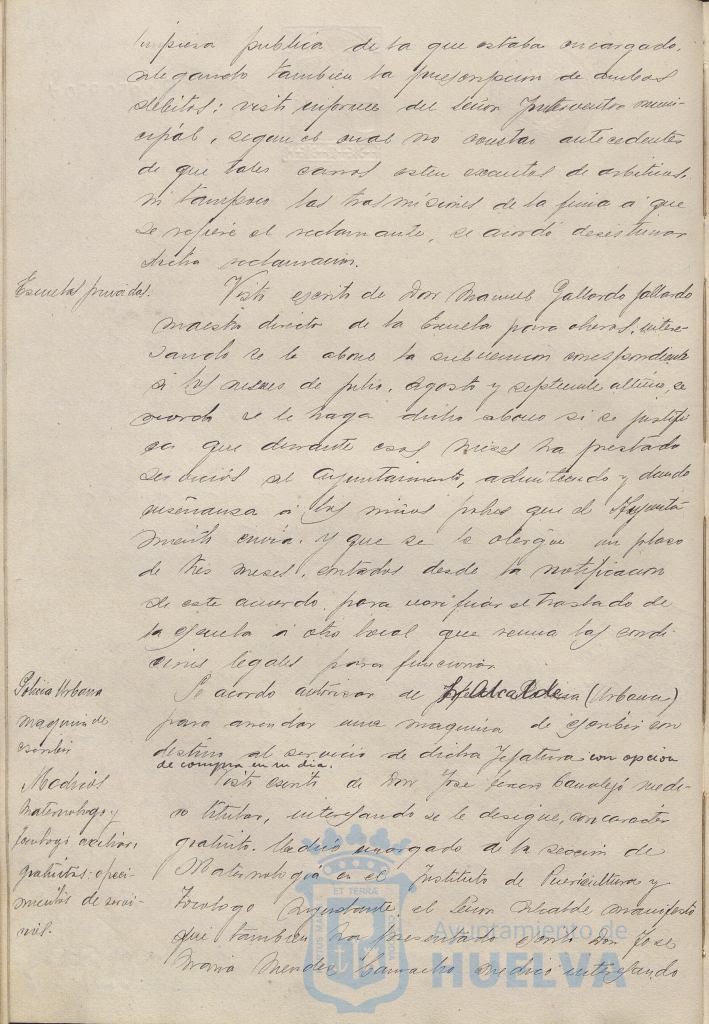 limpieza publica de la que estaba encargado,
alegando tambien la prescripcion de ambos
debitos; visto informe del Señor Interventor muni-
cipal, segun el cual no constan antecedentes
de que tales carros esten exentos de arbitrios,
ni tampoco las trasmisiones de la finca a que
se refiere el reclamante, se acordó desestimar
dicha reclamacion.
Escuelas privadas.
Visto escrito de Don Manuel Gallardo Gallardo
maestro director de la Escuela para obreros, intere-
sando se le abone la subvencion correspondiente
a los meses de julio, agosto y septiembre ultimo, se
acordó se le haga dicho abono si se justifi-
ca que durante esos meses ha prestado
servicios al Ayuntamiento, admitiendo y dando
enseñanza a los niños pobres que el Ayunta-
miento envia, y que se le otorgue un plazo
de tres meses, contados desde la notificacion
de este acuerdo, para verificar el traslado de
la escuela a otro local que reuna las condi-
ciones legales para funcionar.
Policia Urbana
maquina de
escribir
Se acordo autorizar de Alcalde (Urbana)
para arrendar una maquina de escribir con
destino al servicio de dicha Jefatura con opcion
de compra en su dia.
Medicos
Maternologo y
tocologo auxiliar,
gratuitos: ofreci-
mientos de servi-
Visto escrito de Don José Canalejo medi-
co titular, interesando se le designe, con caracter
gratuito, Medico encargado de la seccion de
Maternologia en el Instituto de Puericultura y
Tocologo Ayudante, el Señor Alcalde manifestó
que tambien ha presentado escrito Don José
Maria Mendez Camacho medico interesando
ET TERRA
Ayuntamiento de
HUELVA